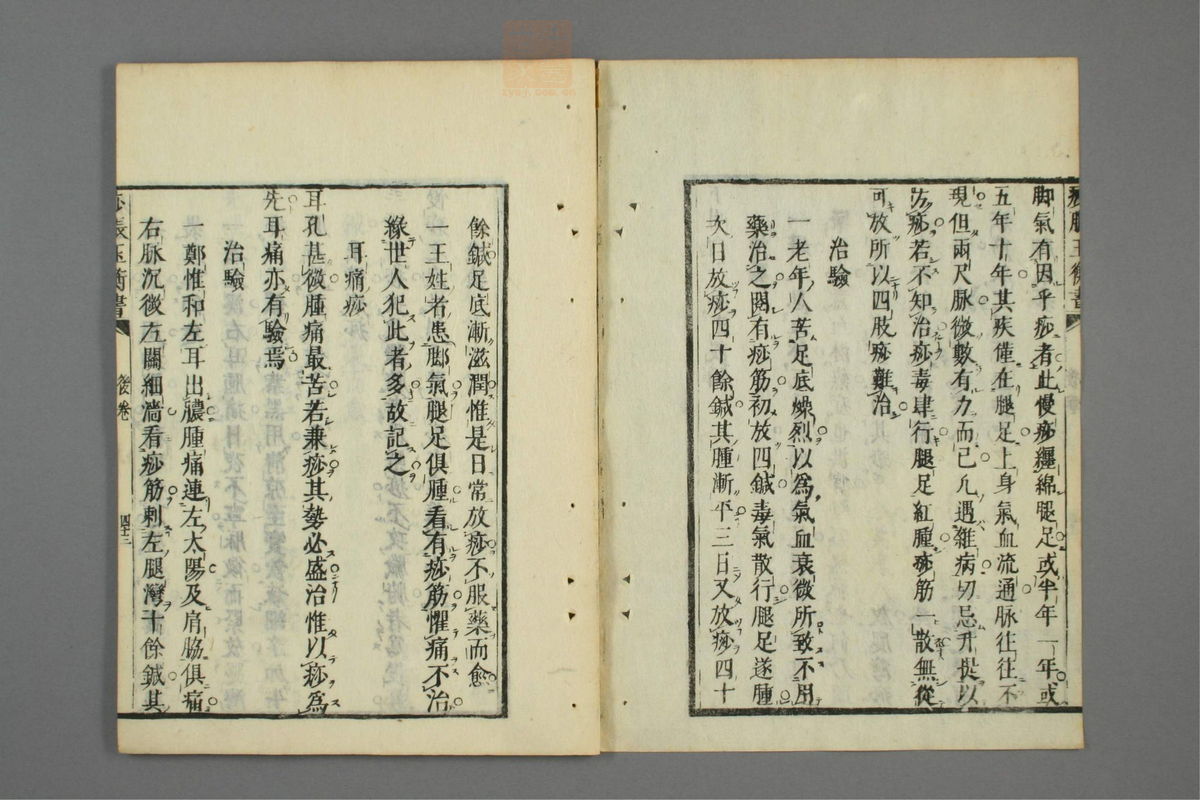 脚氣有因乎痧者此慢痧纒綿腿足或半年一年或
五年十年其疾僅在腿足上身氣血流通脉往往不
現但兩尺脉微數有力而已凢遇雜病切忌升提以
防痧若不知治痧毒肆行腿足紅腫痧筋一散無從
可放所以四肢痧難治
治驗
一老年人苦足底燥烈以為氣血衰微所致不用
藥治之閱有痧筋初放四鍼毒氣散行腿足遂腫
次日放痧四十餘鍼其腫漸平三日又放痧四十
餘鍼足底漸滋潤惟是日常放痧不服藥而愈
一王姓者患脚氣腿足俱腫看有痧筋懼痛不治
緣世人犯此者多故記之
耳痛痧
耳孔甚微腫痛最苦若兼痧其勢必盛治惟以痧為
先耳痛亦有驗焉
治驗
鄭惟和左耳出膿腫痛連左太陽及肩脇俱痛
右脉沉微左關細濇看痧筋刺左腿灣十餘鍼其
痧脹玉衡書
後卷
四十三